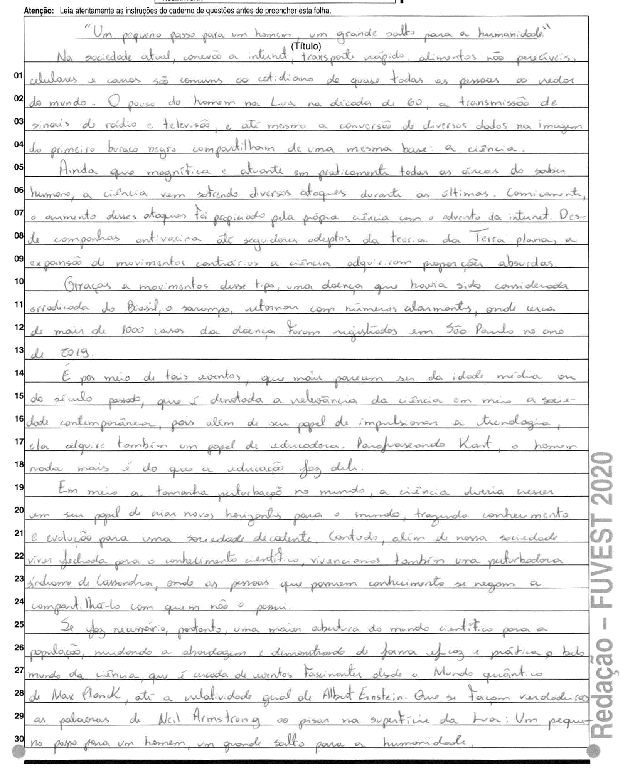 Atenção: Leia atentamente as instruções do caderno de questões antes de preencher esta folha.
"Um pequeno passo para um homem, um grande salto para a humanidade"
(Título)
Na sociedade atual, conexão a internet, transporte rápido, alimentos não perecíveis,
01 celulares e carros são comuns ao cotidiano de quase todas as pessoas ao redor
02 do mundo. O pouso do homem na Lua na década de 60, a transmissão de
03 sinais de rádio e televisão, e até mesmo a conversão de diversos dados na imagem
04 do primeiro buraco negro compartilham de uma mesma base: a ciência.
05 Ainda que magnífica e atuante em praticamente todas as áreas do saber
06 humano, a ciência vem sofrendo diversos ataques durante as últimas. Comicamente,
07 o aumento desses ataques foi propiciado pela própia ciência com o advento da internet. Des-
08 de companhas antivacina até seguidores adeptos da teoria da Terra plana, a
09 expansão de movimentos contrários a ciência adquiriram proporções absurdas.
10 Graças a movimentos desse tipo, uma doença que havia sido considerada
11 erradicada do Brasil, o sarampo, retornou com números alarmantes, onde cerca
12 de mais de 1000 casos da doença foram registrados em São Paulo no ano
13 de 2019.
14 É por meio de tais eventos, que mais parecem ser da idade média ou
15 do século passado, que é denotada a relevância da ciência em meio a socie-
16 dade contemporânea, pois além de seu papel de impulsionar a tecnologia,
17 ela adquire também um papel de educadora. Parafraseando Kant, o homem
18 nada mais é do que a educação faz dele.
19 Em meio a tamanha perturbação no mundo, a ciência deveria exercer
20 um seu papel de criar novos horizontes para o mundo, trazendo conhecimento
21 e evolução para uma sociedade decadente. Contudo, além de nossa sociedade
22 viver fechada para o conhecimento científico, vivenciamos também uma perturbadora
23 síndrome de Cassandra, onde as pessoas que possuem conhecimento se negam a
24 compartilhá-lo com quem não o possui.
25 Se faz necessário, portanto, uma maior abertura do mundo científico para a
26 população, mudando a abordagem e demonstrando de forma eficaz e prática o belo
27 mundo da ciência, que é cercada de eventos fascinantes desde o Mundo quântico
28 de Max Planck, até a relatividade geral de Albert Einstein. Que se façam verdadeiras
29 as palavras de Neil Armstrong ao pisar na superfície da Lua: Um peque-
30 no passo para um homem, um grande salto para a humanidade.
Redação – FUVEST 2020